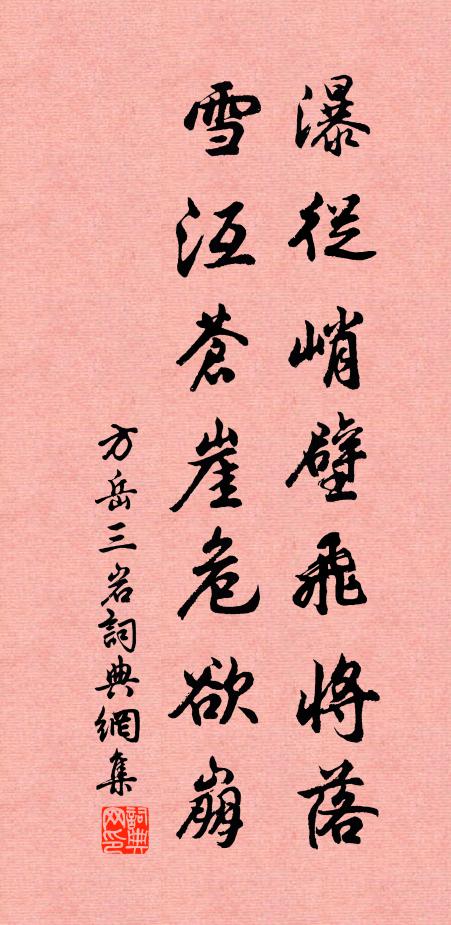 瀑從峭壁飛將落
雪沍蒼崖危欲崩
方岳三岩詞典網集
詞典网印